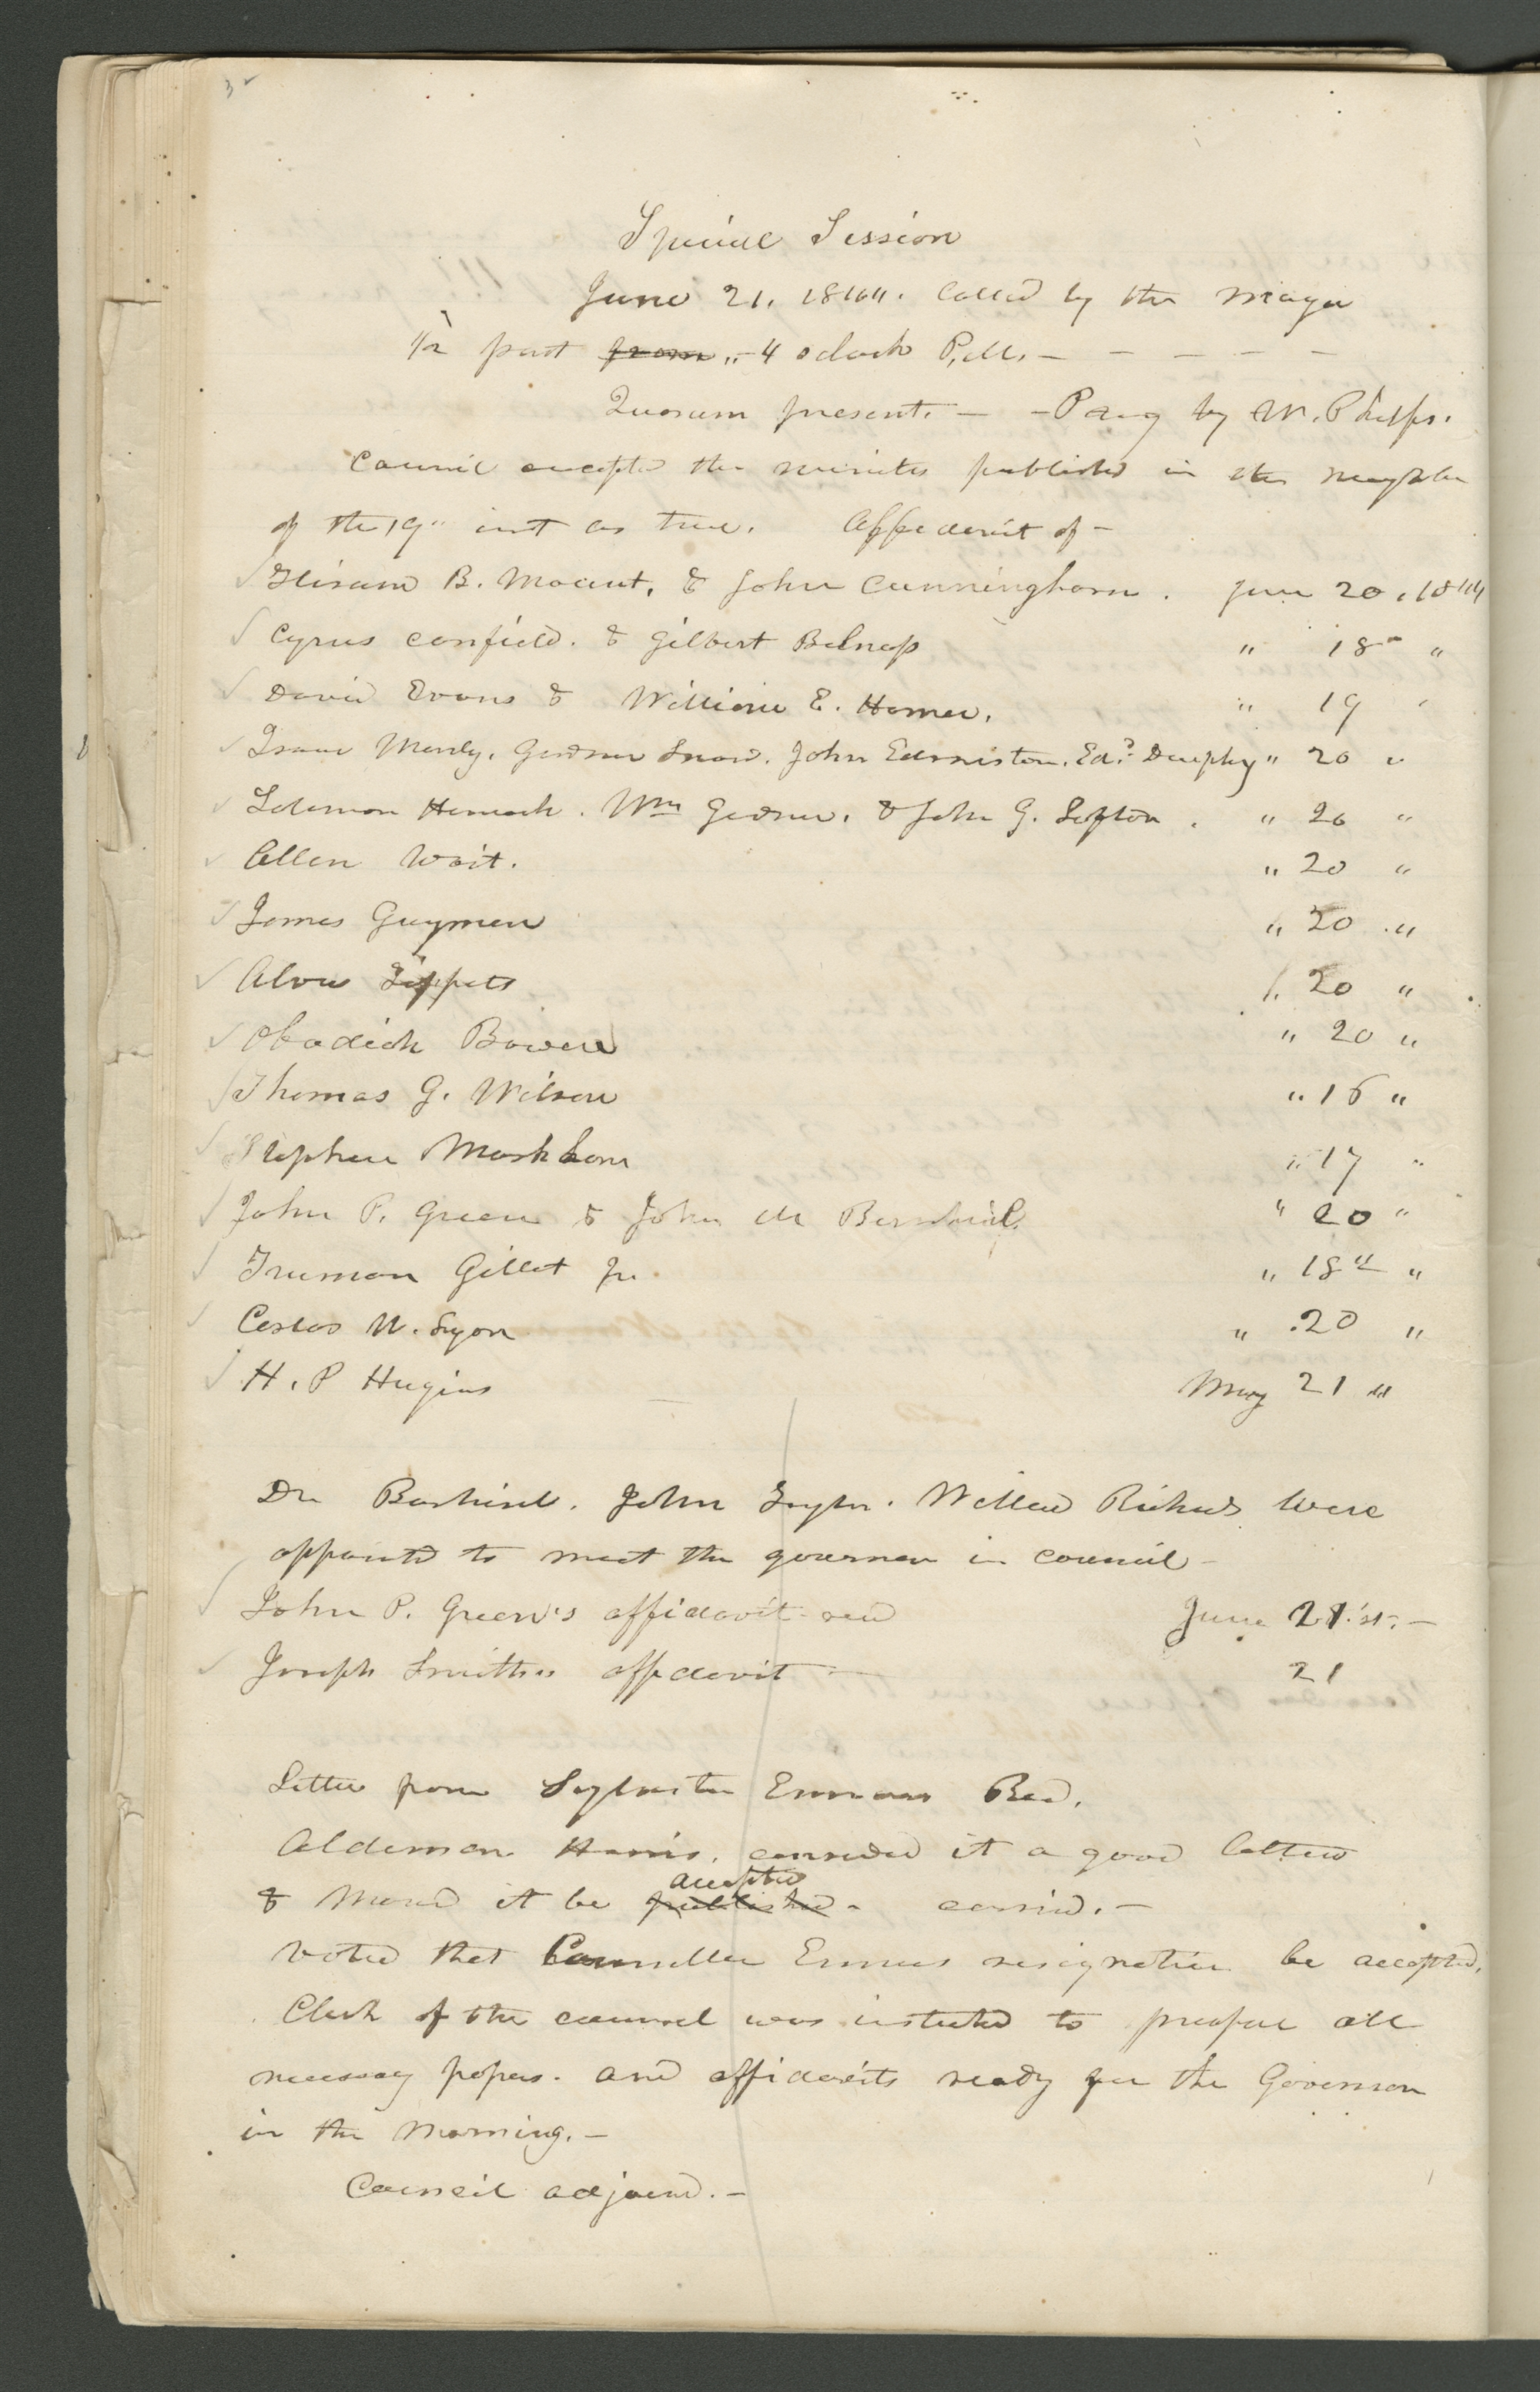 32
Special Session
June 21. 1844. Called by the Mayor
1/2 past from 4 oclock P.M. — — — — —
Quorum present. — — Pray by W. Phelps.
Council accepted the minutes published in the neighbor
of the 19" inst as true. Affedavit of —
Hiram B. Mount, & John Cunningham. June 20, 1844
Cyrus Canfield. & Gilbert Belnap " 18 "
David Evans & William E. Horner. " 19 "
Isaac Morly. Gardner Snow. John Edmiston. Edd. Dunphy " 20 "
Solomon Hancock. Wm Gardner. & John G. Lofton. " 20 "
Allen Wait. " 20 "
James Guymon " 20 "
Alvah Tippets " 20 "
Obadiah Bowen " 20 "
Thomas G. Wilson " 16 "
Stephen Markham " 17 "
John P. Green & John M Bernhisel. " 20 "
Truman Gillet Jr. " 18th "
Carlos W. Lyon " 20 "
H. P Hugins May 21 "
Dr Berhisel. John Taylor. Willard Richards were
appointed to meet the governor in council —
John P. Green's affidavit read June 21.st. —
Joseph Smith's affidavit — 21
Letter from Sylvester Emmons Read.
Alderman Harris. considered it a good letter
accepted
& Moved it be published. carrid. —
Voted that Councillor Emmons resignation be accepted.
Clerk of the council was instructed to prepare all
necessary papers. and affidavits ready for the Governor
in the Morning. —
Council adjournd. —